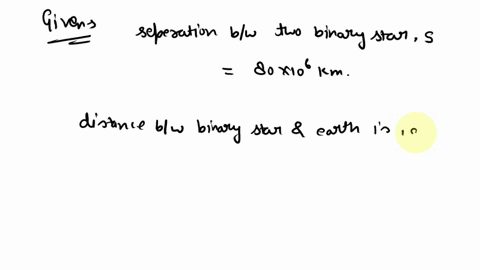 Givens seperation b/w two binary star, s
= 80 x 10⁶ Km.
distance b/w binary star & earth is 10